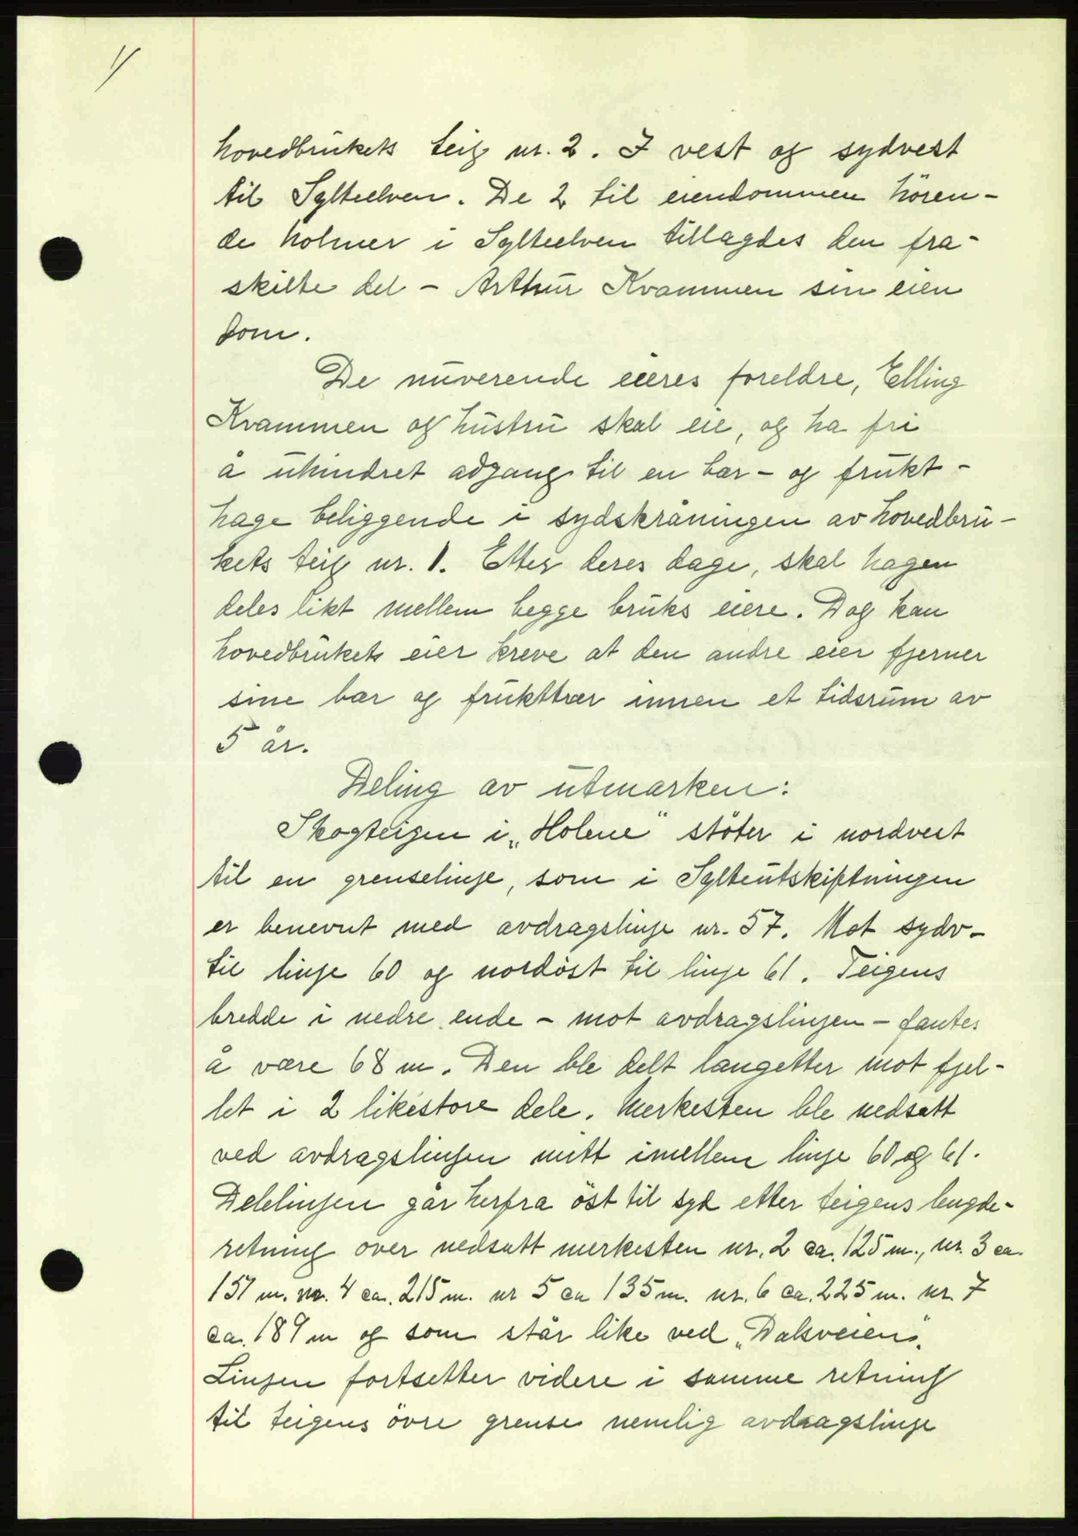 hovedbrukets teig nr. 2. I vest og sydvest
til Sylteelven. De 2 til eiendommen hören-
de holmer i Sylteelven tillagdes den fra-
skilte del - Arthur Kvammen sin eien
dom.
De nuverende eieres foreldre, Elling
Kvammen og hustru skal eie, og ha fri
å uhindret adgang til en bær- og frukt-
hage beliggende i sydskråningen av hovedbru-
kets teig nr. 1. Etter deres dage, skal hagen
deles likt mellem begge bruks eiere. Dog kan
hovedbrukets eier kreve at den andre eier fjerner
sine bær og frukttrær innen et tidsrum av
5 år.
Deling av utmarken:
Skogteigen i „Holene" stöter i nordvest
til en grenselinje, som i Sylteutskiftningen
er benevnt med avdragslinje nr. 57. Mot sydv-
til linje 60 og nordöst til linje 61. Teigens
bredde i nedre ende - mot avdragslinjen - fantes
å være 68 m. Den ble delt langetter mot fjel-
let i 2 likestore dele. Merkesten ble nedsatt
ved avdragslinjen mitt imellem linje 60 og 61.
Delelinjen går herfra öst til syd etter teigens lengde-
retning over nedsatt merkesten nr. 2 ca. 125 m., nr. 3 ca.
151 m. nr. 4 ca. 215 m. nr 5 ca 135 m. nr. 6 ca. 225 m. nr. 7
ca. 189 m og som står like ved „Dalsveien".
Linjen fortsetter videre i samme retning
til teigens övre grense nemlig avdragslinje